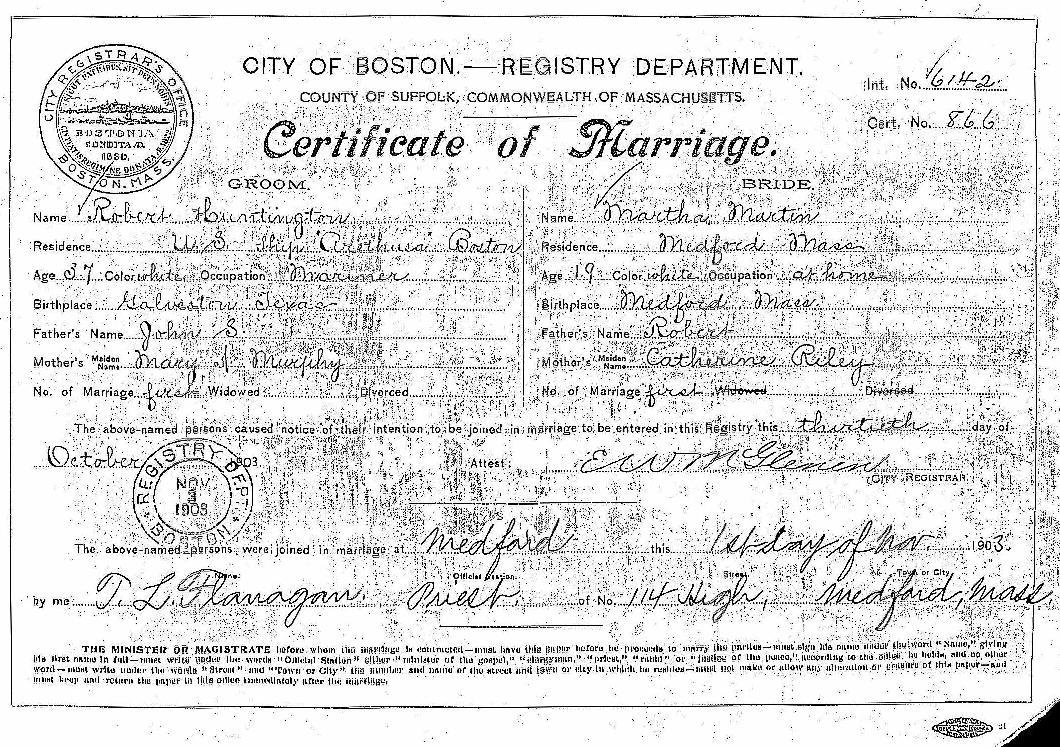 CITY REGISTRAR'S OFFICE
BOSTONIA
CONDITA A.D.
1630.
BOSTON, MASS.
CITY OF BOSTON.—REGISTRY DEPARTMENT.
COUNTY OF SUFFOLK, COMMONWEALTH OF MASSACHUSETTS.
Int. No. 6142
Cert. No. 866
Certificate of Marriage.
GROOM.
Name Robert Huntington
Residence U. S. Ship "Arethusa" Boston
Age 37 Color white Occupation Mariner
Birthplace Galveston Texas
Father's Name John S
Mother's Maiden Name Mary J Murphy
No. of Marriage first Widowed Divorced
BRIDE.
Name Martha Martin
Residence Medford Mass
Age 19 Color white Occupation at home
Birthplace Medford Mass.
Father's Name Robert
Mother's Maiden Name Catherine Riley
No. of Marriage first Widowed Divorced
The above-named persons caused notice of their intention to be joined in marriage to be entered in this Registry this thirtieth day of
October 1903
Attest: E W McGlenen
CITY REGISTRAR
REGISTRY DEPT.
NOV
3
1903
BOSTON
The above-named persons were joined in marriage at Medford this 1st day of Nov. 1903.
Name. Official Station. Street Town or City
by me T. L. Flanagan Priest of No. 114 High, Medford, Mass
THE MINISTER OR MAGISTRATE before whom the marriage is contracted—must have this paper before he proceeds to marry the parties—must sign his name under the word "Name," giving
his first name in full—must write under the words "Official Station" either "minister of the gospel," "clergyman," "priest," "rabbi" or "justice of the peace," according to the office he holds, and no other
word—must write under the words "Street" and "Town or City" the number and name of the street and town or city in which he resides—must not make or allow any alteration or erasure of this paper—and
must keep and return the paper to this office immediately after the marriage.